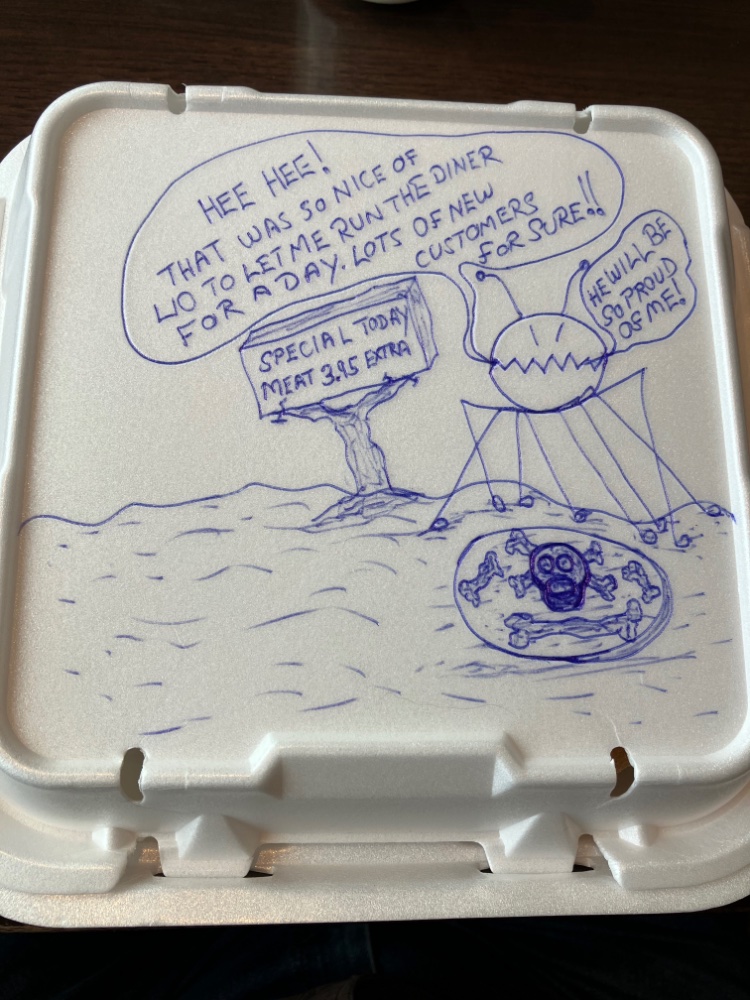 HEE HEE!
THAT WAS SO NICE OF
LIO TO LET ME RUN THE DINER
FOR A DAY. LOTS OF NEW
CUSTOMERS
FOR SURE!!
HE WILL BE
SO PROUD
OF ME!
SPECIAL TODAY
MEAT 3.95 EXTRA